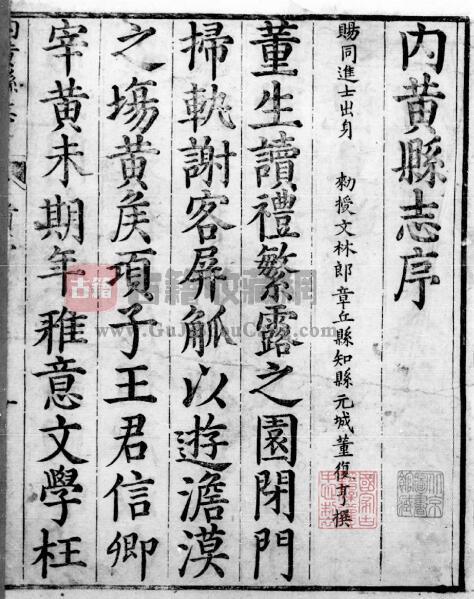 内黄縣志序
賜同進士出身 勑授文林郎章丘縣知縣元城董復亨撰
董生讀禮繁露之園閉門
掃軌謝客屏觚以遊澹漠
之塲黄矦項子王君信卿
宰黄未期年雅意文學枉
古籍 古籍收藏网